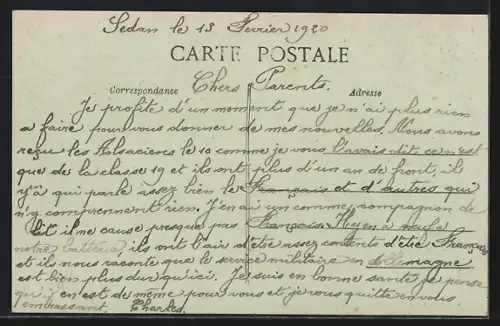 Sedan le 13 Fevrier 1920
CARTE POSTALE
Correspondance Chers Parents. Adresse
Je profite d'un moment que je n'ai plus rien
a faire pour vous donner de mes nouvelles. Nous avons
reçu les Alsaciens le 10 comme je vous l'avais dit ce n'est
que de la classe 19 et ils ont plus d'un an de front, il
y'a qui parle assez bien le Français et d'autres qui
n'y comprennent rien. J'en ai un comme compagnon de
lit il ne cause presque pas Français. Il y en a neuf a
notre batterie ils ont l'air d'être assez contents d'être Français
et ils nous raconte que le service militaire en Allemagne
est bien plus dur qu'ici. Je suis en bonne santé je pense
qu'il en est de même pour vous et je vous quitte en vous
embrassant. Charles.